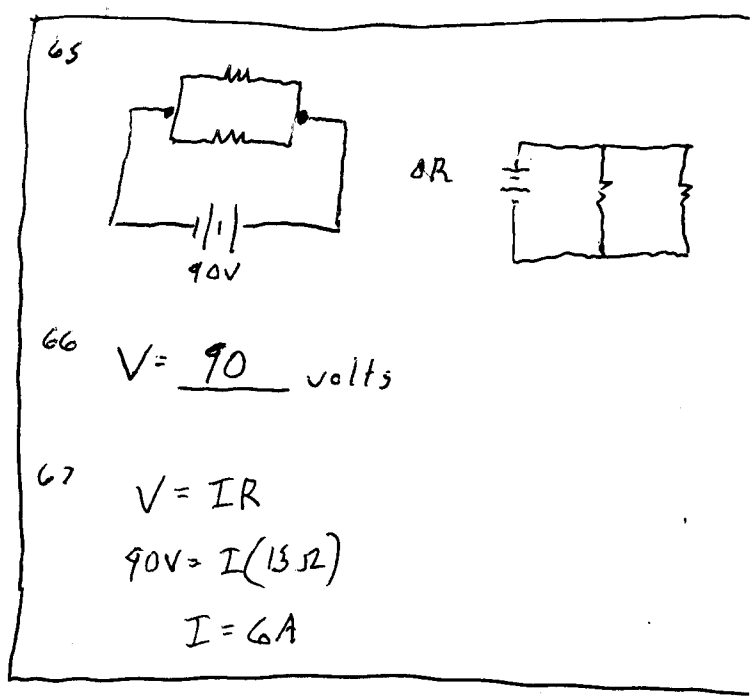 65
OR
90V
66 V = 90 volts
67 V = IR
90V = I(15Ω)
I = 6A